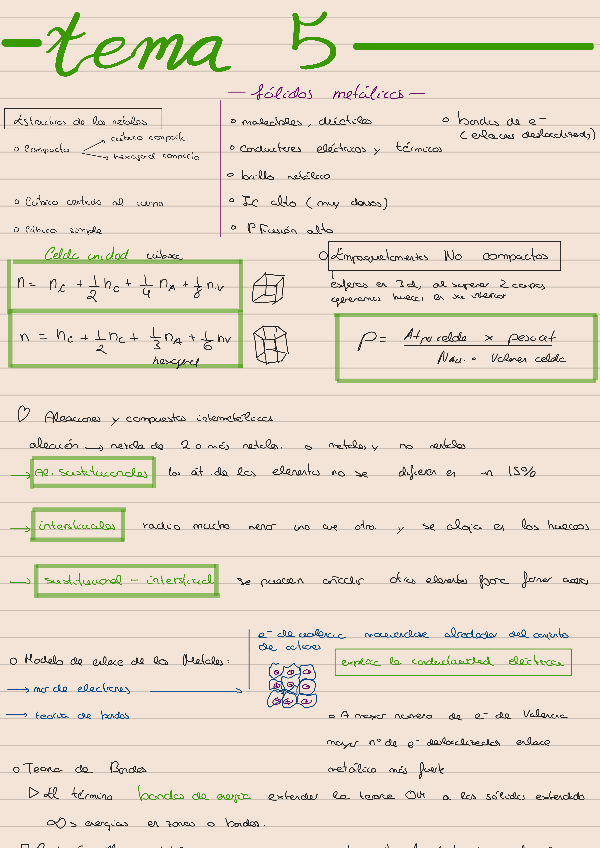 tema 5
— Sólidos metálicos —
Estructuras de los metales
o Compactas
cúbico compacto
hexagonal compacto
o Cúbico centrado al cuerpo
o Cúbico simple
o maleables, dúctiles
o conductores eléctricos y térmicos
o brillo metálico
o Ic alto (muy densos)
o P Fusión alto
o bandas de e⁻
(enlaces deslocalizados)
Celda unidad cúbica
n = nc + 1/2 nc + 1/4 nA + 1/8 nv
n = nc + 1/2 nc + 1/3 nA + 1/6 nv
hexagonal
o Empaquetamientos No compactos
esferas en 3d, al superar 2 capas
generamos huecos en su interior
ρ = At por celda x peso at / Nav. · Volumen celda
♡ Aleaciones y compuestos intermetálicos
aleación → mezcla de 2 o más metales. o metales y no metales
→ Al. sustitucionales los át. de los elementos no se difieren en 15%
→ intersticiales radio mucho menor uno que otro. y se aloja en los huecos
→ sustitucional - intersticial se pueden añadir otros elementos para formar
o Modelo de enlace de los Metales:
→ mar de electrones
→ teoría de bandas
e⁻ de valencia moviéndose alrededor del conjunto
de cationes
explica la conductividad eléctrica
o A mayor número de e⁻ de valencia
mayor nº de e⁻ deslocalizados enlace
metálico más fuerte
o Teoría de Bandas
▷ El término bandas de energía extender la teoría OM a los sólidos extendido
∞s energías en zonas o bandas.